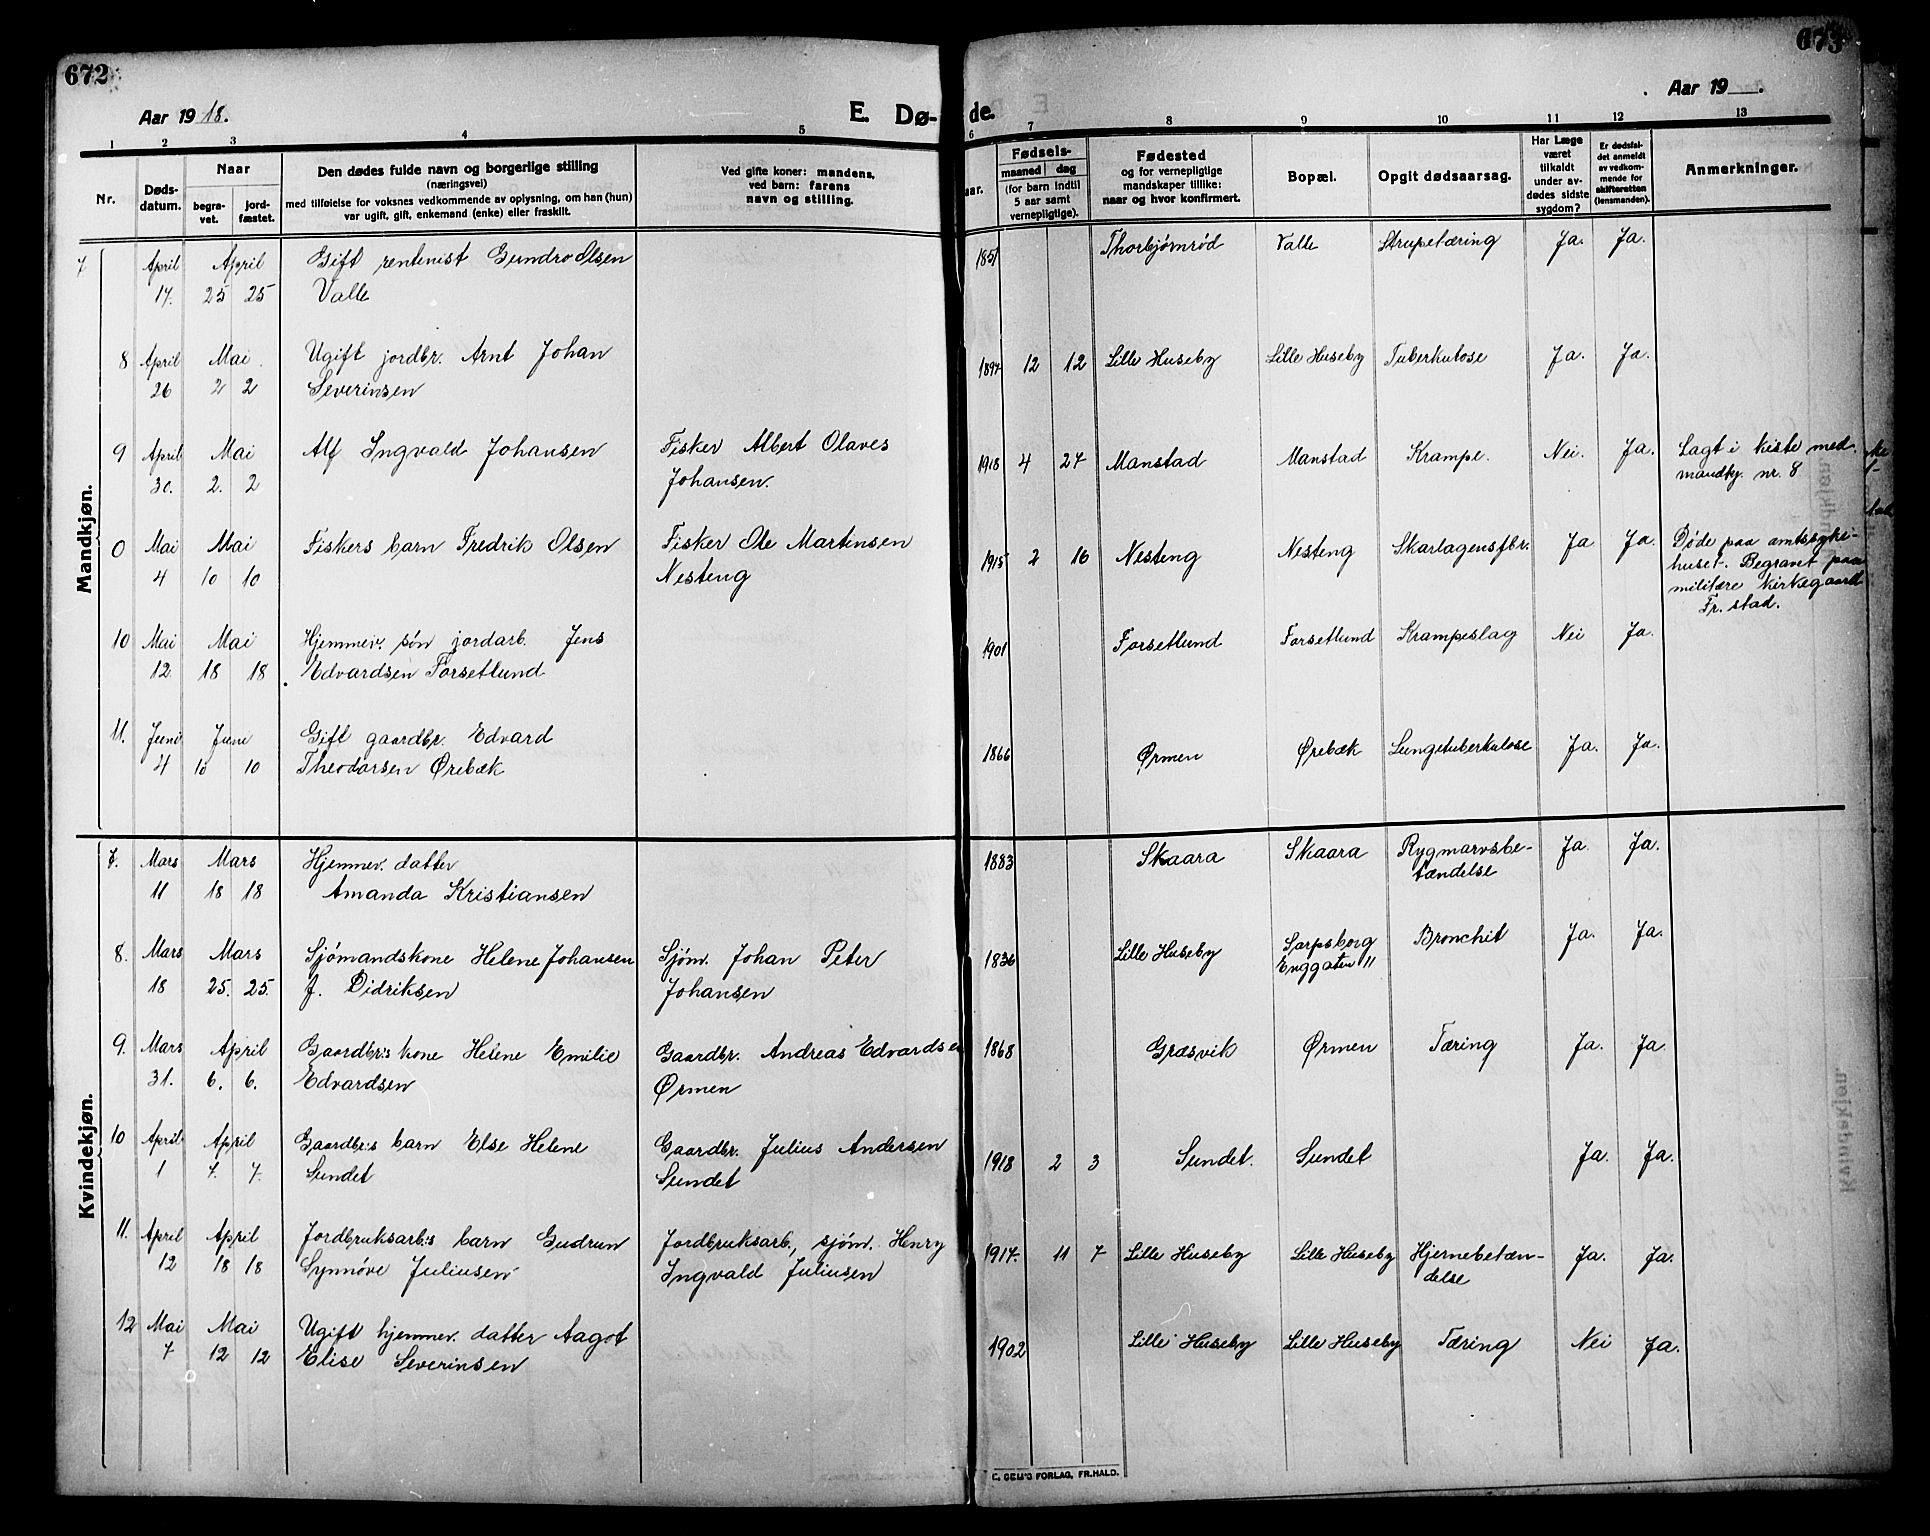 672
673
Aar 1918.
E. Dø-
de.
Aar 19
1 2 3 4 5 6 7 8 9 10 11 12 13
Nr.
Døds-
datum.
Naar
begra-
vet.
jord-
fæstet.
Den dødes fulde navn og borgerlige stilling
(næringsvei)
med tilføielse for voksnes vedkommende av oplysning, om han (hun)
var ugift, gift, enkemand (enke) eller fraskilt.
Ved gifte koner: mandens,
ved barn: farens
navn og stilling.
aar.
Fødsels-
maaned dag
(for barn indtil
5 aar samt
vernepligtige).
Fødested
og for vernepligtige
mandskaper tillike:
naar og hvor konfirmert.
Bopæl.
Opgit dødsaarsag.
Har Læge
været
tilkaldt
under av-
dødes sidste
sygdom?
Er dødsfal-
det anmeldt
av vedkom-
mende for
skifteretten
(lensmanden).
Anmerkninger.
Mandkjøn.
7 April April Gift rentenist Gundro Olsen 1851 Thorbjørnrød Valle Strupetæring Ja. Ja.
17. 25 25 Valle
8 April Mai Ugift jordbr. Arnt Johan 1897 12 12 Lille Huseby Lille Huseby Tuberkulose Ja. Ja.
26 2 2 Severinsen
9 April Mai Alf Ingvald Johansen Fisker Albert Olaves 1918 4 27 Manstad Manstad Krampe. Nei. Ja. Lagt i kiste med
30. 2. 2 Johansen. mandkj. nr. 8
0 Mai Mai Fiskers barn Fredrik Olsen Fisker Ole Martinsen 1915 2 16 Nesteng Nesteng Skarlagensfbr. Ja Ja. Døde paa amtssyke-
4 10 10 Nesteng huset. Begravet paa
militære kirkegaard
Fr. stad.
10 Mai Mai Hjemmev. søn jordarb. Jens 1901 Forsetlund Forsetlund Krampeslag Nei Ja.
12. 18 18 Edvardsen Forsetlund
11. Juni June Gift gaardbr. Edvard 1866 Ørmen Ørebæk Lungetuberkulose Ja. Ja.
4 10 10 Theodorsen Ørebæk
Kvindekjøn.
7. Mars Mars Hjemmev. datter 1883 Skaara Skaara Rygmarvsbe- Ja. Ja.
11 18 18 Amanda Kristiansen tændelse
8. Mars Mars Sjømandskone Helene Johansen Sjøm. Johan Peter 1836 Lille Huseby Sarpsborg Bronchit Ja. Ja.
18 25. 25. f. Didriksen Johansen Enggaten 11
9. Mars April Gaardbr:s kone Helene Emilie Gaardbr. Andreas Edvardsen 1868 Græsvik Ørmen Tæring Ja. Ja.
31. 6. 6. Edvardsen Ørmen
10 April April Gaardbr:s barn Else Helene Gaardbr. Julius Andersen 1918 2 3 Sundet. Sundet Ja. Ja.
1 7. 7. Sundet Sundet
11. April April Jordbruksarb:s barn Gudrun Jordbruksarb., sjøm. Henry 1917. 11 7 Lille Huseby Lille Huseby Hjernebetæn- Ja. Ja.
12 18 18 Synnøve Juliusen Ingvald Juliusen delse
12 Mai Mai Ugift hjemmev. datter Aagot 1902 Lille Huseby Lille Huseby Tæring Nei Ja.
7 12 12 Elise Severinsen
E. SEM'S FORLAG, FR.HALD.